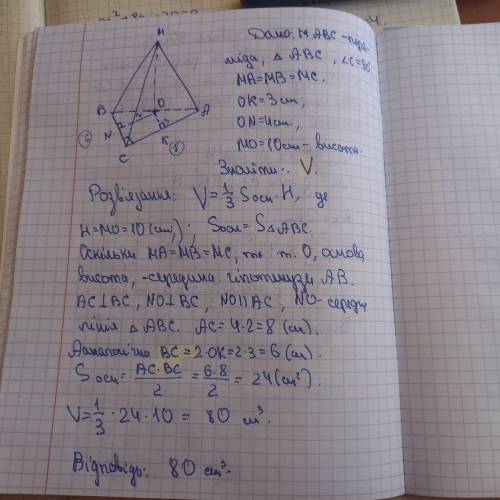 M
B
O
A
N
K
C
6
8
Дано: MABC – піра-
міда, △ABC, ∠C=90°
MA=MB=MC.
OK=3 cm,
ON=4 cm,
MO=10 cm – висота.
Знайти: V.
Розв'язання: V=1/3 Sосн·H, де
H=MO=10 (cm); Sосн=S△ABC.
Оскільки MA=MB=MC, то т. O, основа
висоти, -середина гіпотенузи AB.
AC⊥BC, NO⊥BC, NO||AC, NO- середня
лінія △ABC. AC=4·2=8 (cm).
Аналогічно BC=2·OK=2·3=6 (cm).
Sосн=AC·BC/2=6·8/2=24(cm²).
V=1/3·24·10=80 cm³.
Відповідь: 80 cm³.